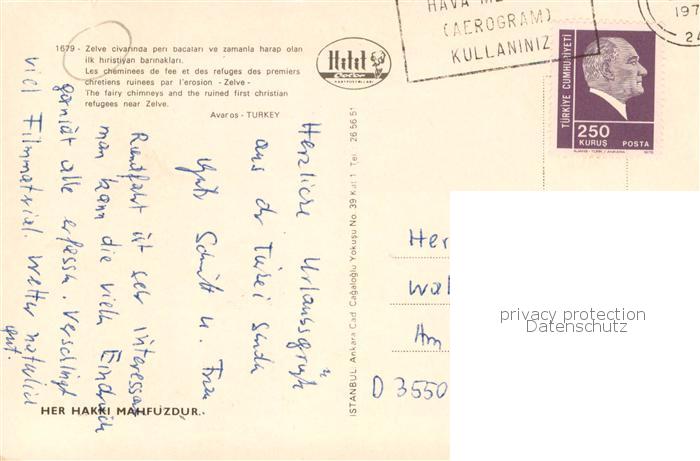 1679 - Zelve civarında peri bacaları ve zamanla harap olan
ilk hıristiyan barınakları.
Les cheminees de fee et des refuges des premiers
chretiens ruinees par l'erosion - Zelve -
The fairy chimneys and the ruined first christian
refugees near Zelve.
Avaros - TURKEY
Hitit
Color
HAVA
(AEROGRAM)
KULLANINIZ
197
24
TÜRKİYE CUMHURİYETİ
250
KURUŞ POSTA
Herzliche Urlaubsgrüße
aus der Türkei senden
Schmitt u. Frau
Rundfahrt ist sehr interessant
man kann die vielen Eindrücke
gar nicht alle erfassen. Verschlingt
viel Filmmaterial. Wetter natürlich
gut.
İSTANBUL: Ankara Cad. Cağaloğlu Yokuşu No. 39 Kat 1 Tel : 26 56 51
Her
Wal
Am
D 3550
privacy protection
Datenschutz
HER HAKKI MAHFUZDUR.